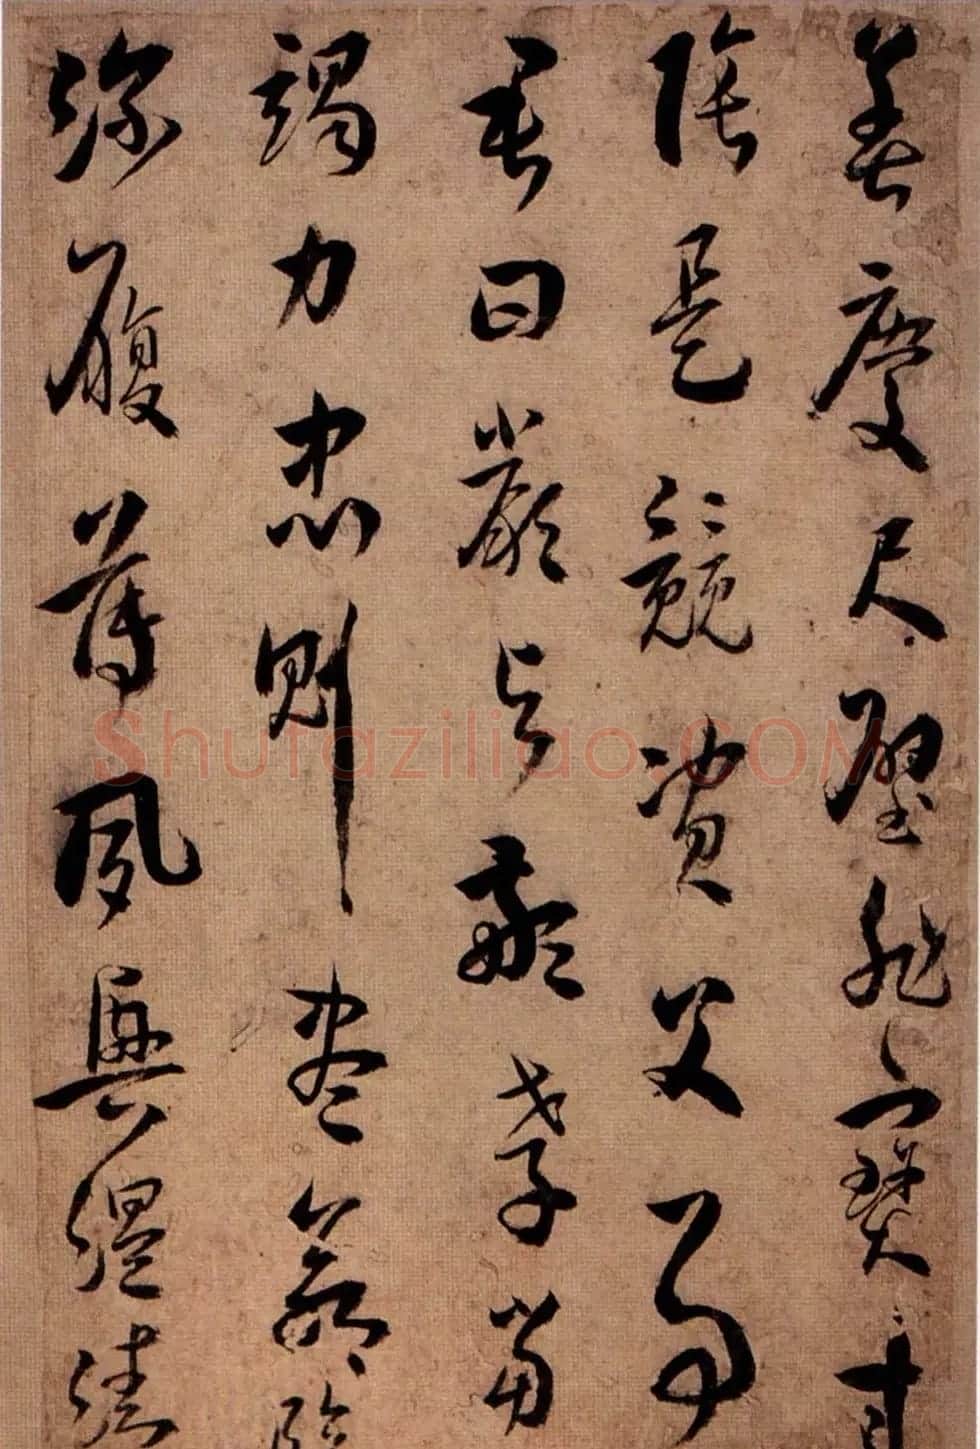 善慶尺璧非寶寸
陰是競資父事
君曰嚴與敬孝當
竭力忠則盡命臨
深履薄夙興溫凊
Shufaziliao.COM